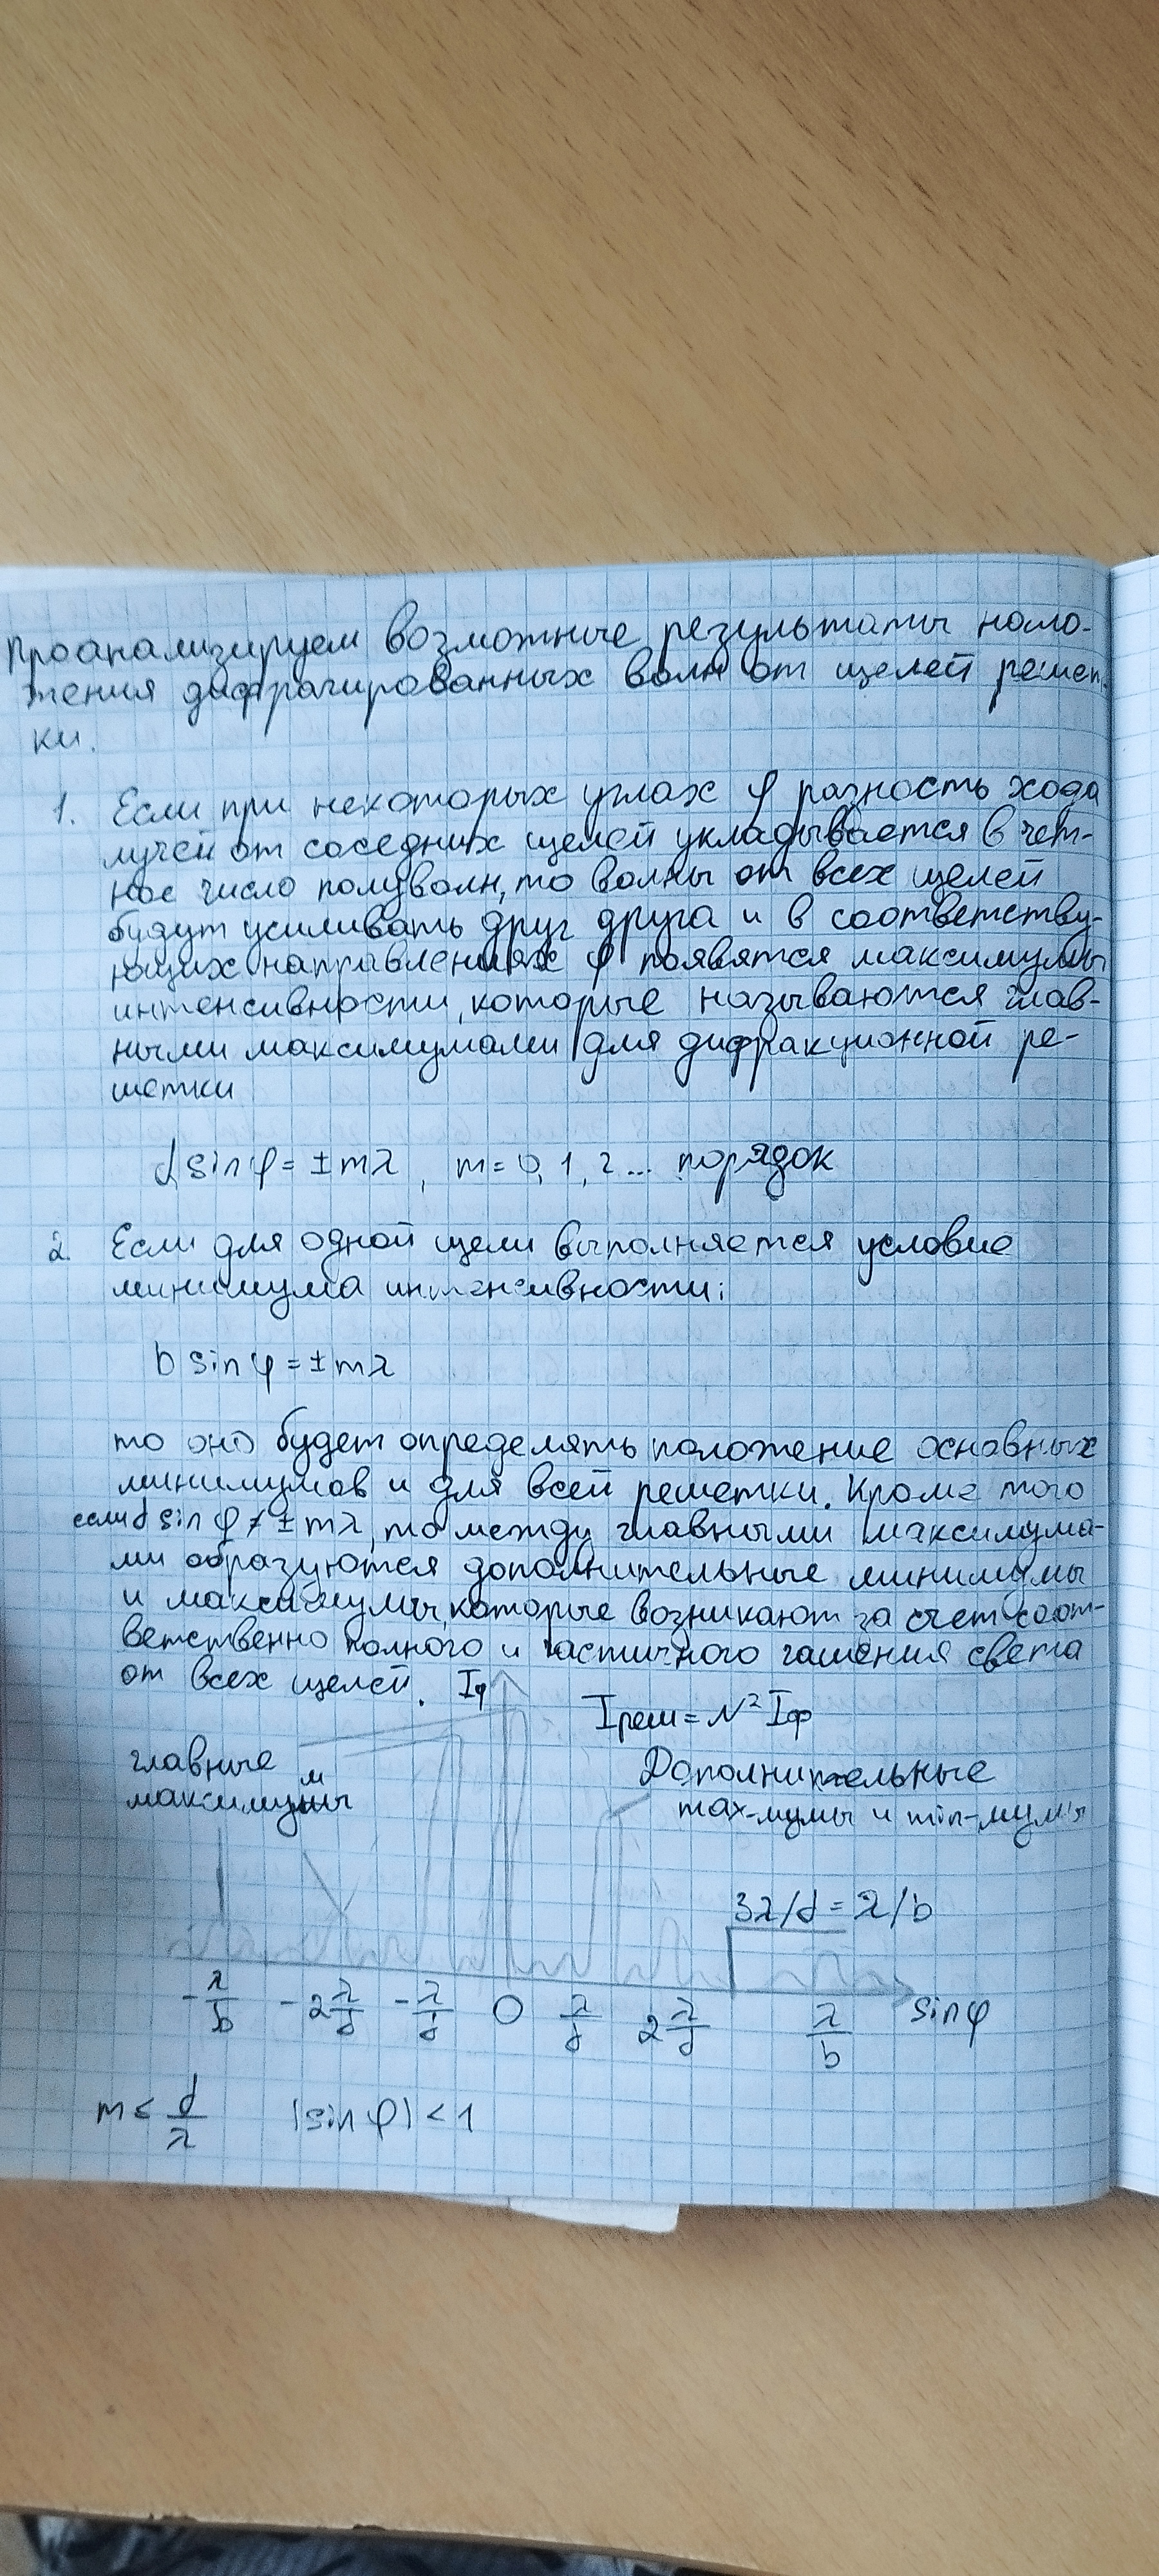 Проанализируем возможные результаты нало-
жения дифрагированных волн от щелей решет-
ки.
1. Если при некоторых углах φ разность хода
лучей от соседних щелей укладывается в чет-
ное число полуволн, то волны от всех щелей
будут усиливать друг друга и в соответству-
ющих направлениях φ появятся максимумы
интенсивности, которые называются глав-
ными максимумами для дифракционной ре-
шетки
d sin φ = ± mλ, m = 0, 1, 2 ... порядок
2. Если для одной щели выполняется условие
минимума интенсивности:
b sin φ = ± mλ
то оно будет определять положение основных
минимумов и для всей решетки. Кроме того
если d sin φ ≠ ± mλ, то между главными максимума-
ми образуются дополнительные минимумы
и максимумы, которые возникают за счет соот-
ветственно полного и частичного гашения света
от всех щелей. Iφ
Iреш = N² Iφ
главные
максимумы
Дополнительные
max-мумы и min-мумы
3λ/d = λ/b
-λ/b -2λ/d -λ/d 0 λ/d 2λ/d λ/b sin φ
m ≤ d/λ |sin φ| < 1